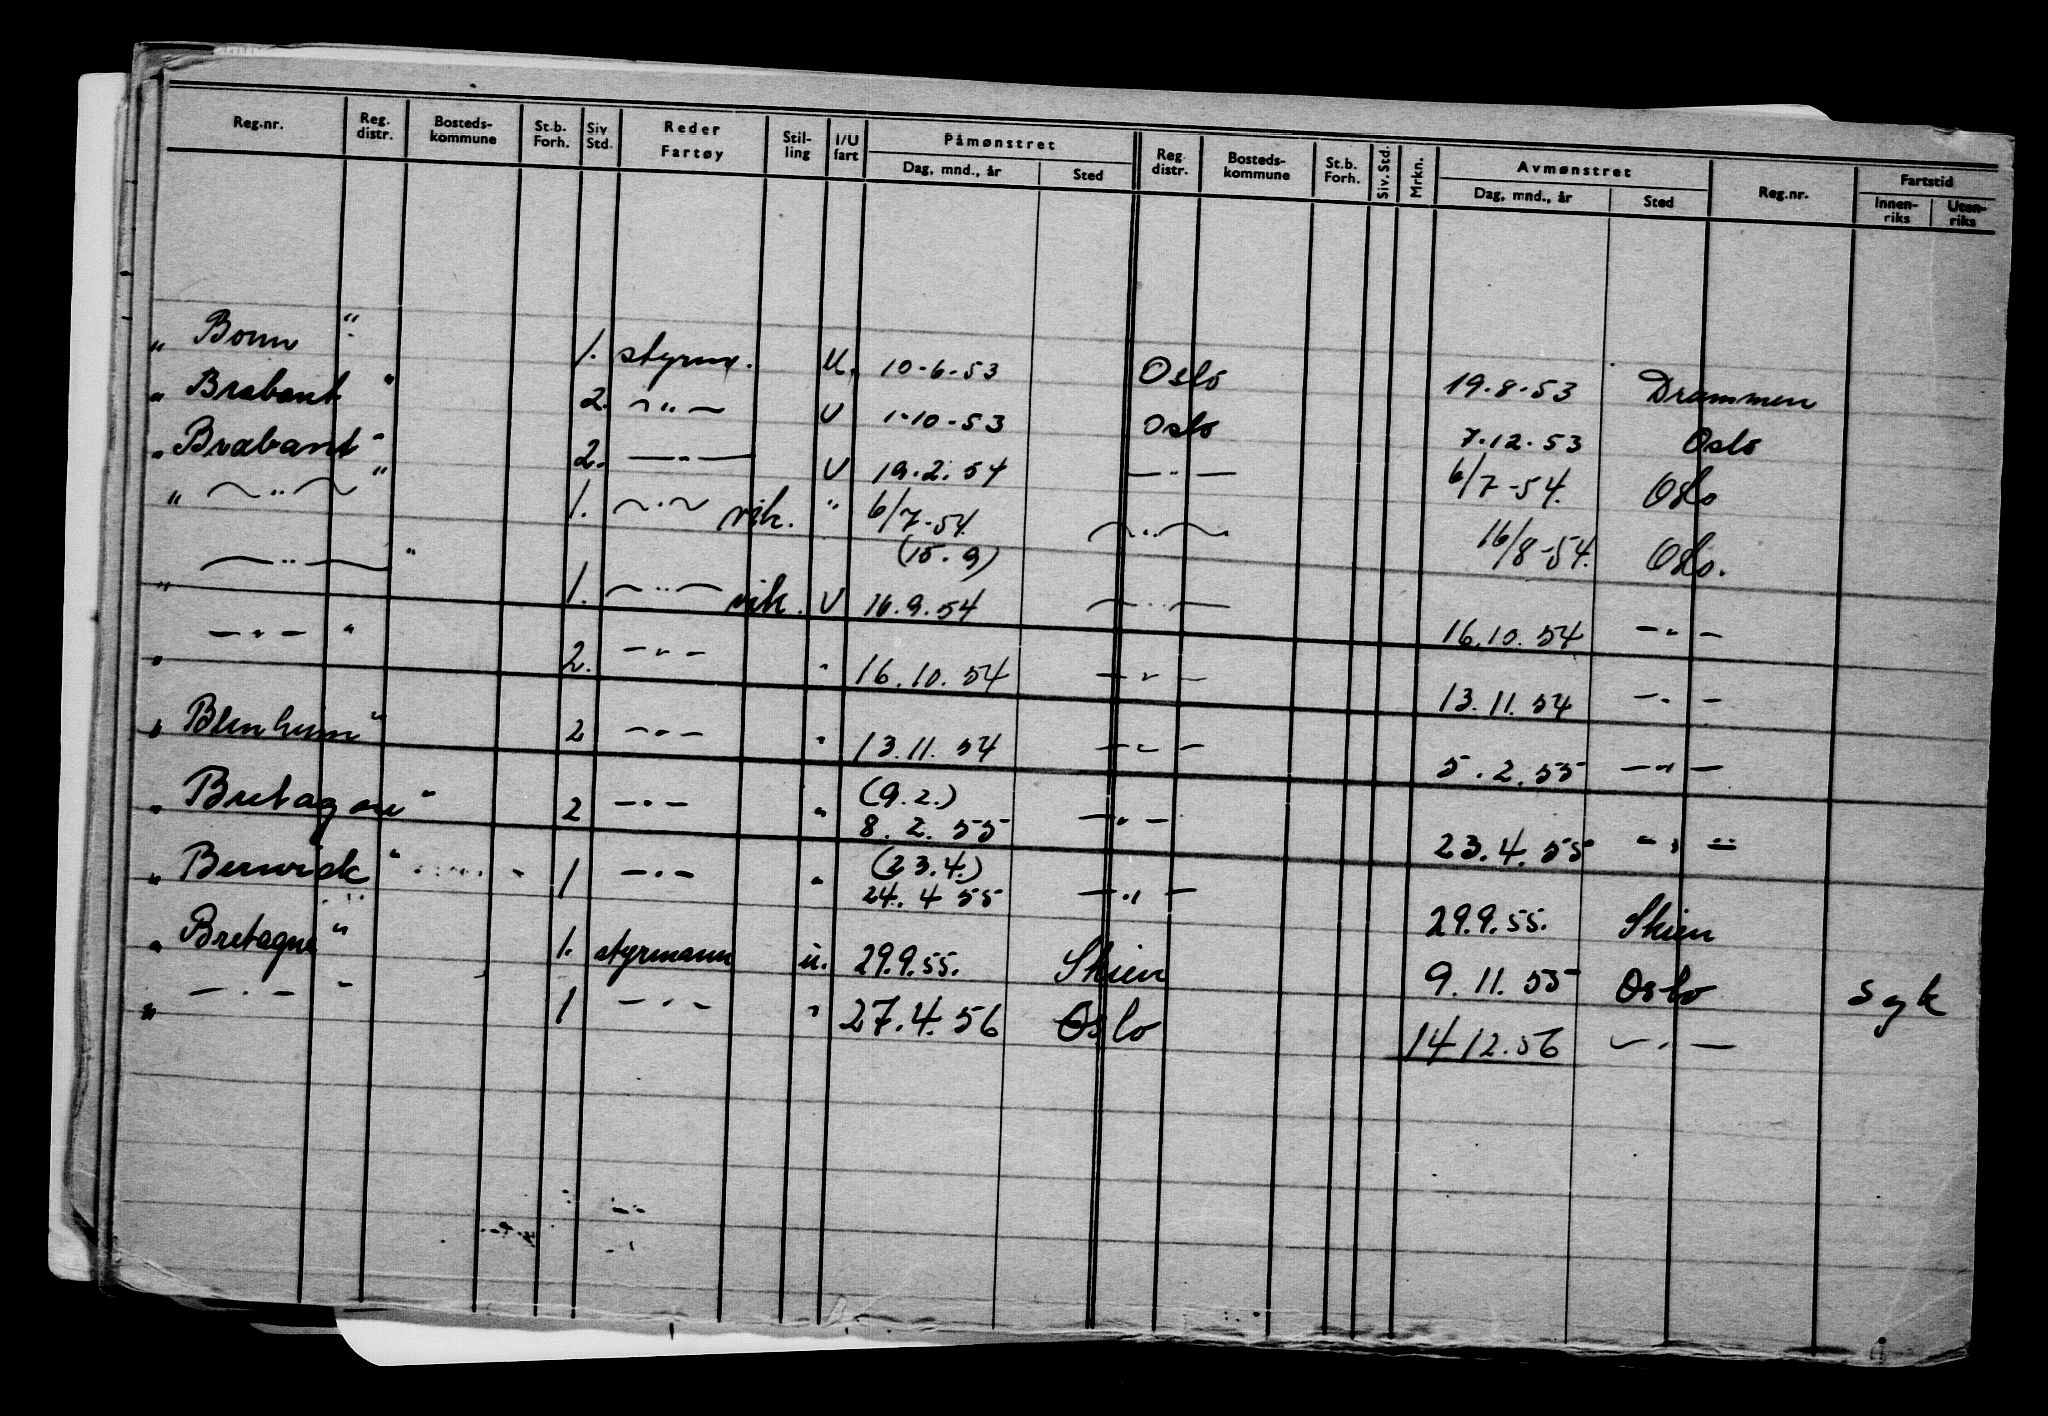 Reg.nr. Reg. distr. Bosteds-kommune St.b. Forh. Siv Std. Reder Fartøy Stil-ling I/U fart Påmønstret Dag, mnd., år Sted Reg. distr. Bosteds-kommune St.b. Forh. Siv. Std. Mrkn. Avmønstret Dag, mnd., år Sted Reg.nr. Fartstid Innen-riks Uten-riks
„ Bonn " 1. styrm. U. 10-6-53 Oslo 19.8.53 Drammen
„ Brabant " 2. —"— U 1-10-53 Oslo 7.12.53 Oslo
„ Brabant " 2. —"— U 19.2.54 —"— 6/7-54. Oslo
„ —"— " 1. —"— vik. " 6/7-54. —"— 16/8-54. Oslo.
(15.9)
„ —"— " 1. —"— vik. U 16.9.54 —"— 16.10.54 —"—
„ —"— " 2. —"— " 16.10.54 —"— 13.11.54 —"—
„ Blenheim " 2 —"— " 13.11.54 —"— 5.2.55 —"—
(9.2.)
„ Bretagne " 2 —"— " 8.2.55 —"— 23.4.55 —"—
(23.4.)
„ Berwick " 1 —"— " 24.4 55 —"— 29.9.55. Skien
„ Bretagne " 1. styrmann u. 29.9.55. Skien 9.11.55 Oslo syk
„ —"— " 1 —"— " 27.4.56 Oslo 14 12.56 —"—